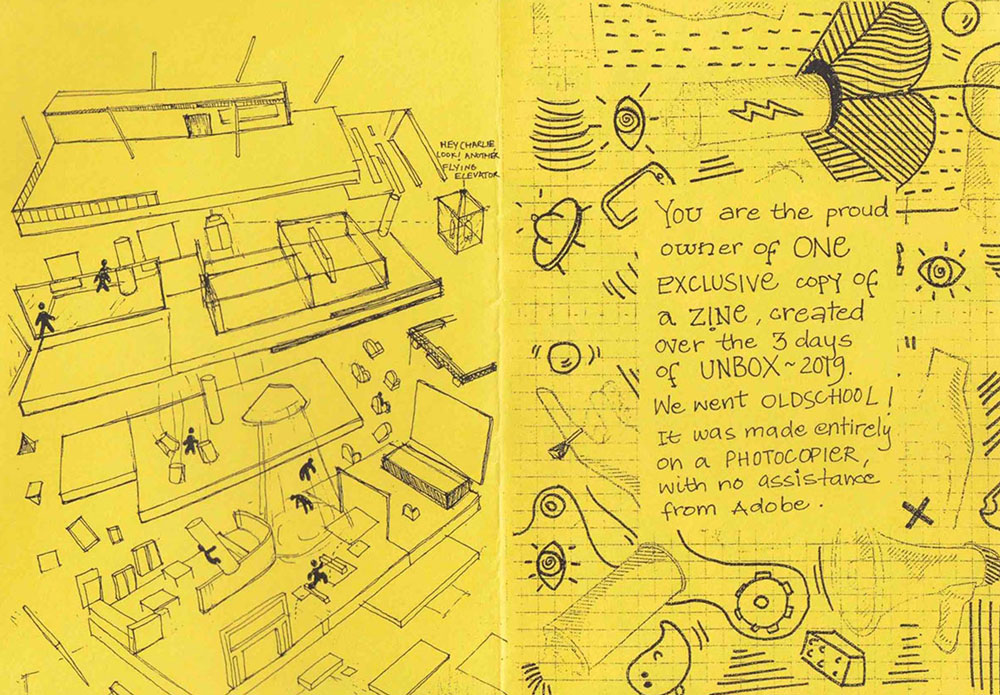 HEY CHARLIE,
LOOK! ANOTHER
FLYING
ELEVATOR
You are the proud
owner of ONE
EXCLUSIVE copy of
a ZINE, created
over the 3 days
of UNBOX~2019.
We went OLDSCHOOL!
It was made entirely
on a PHOTOCOPIER,
with no assistance
from Adobe.